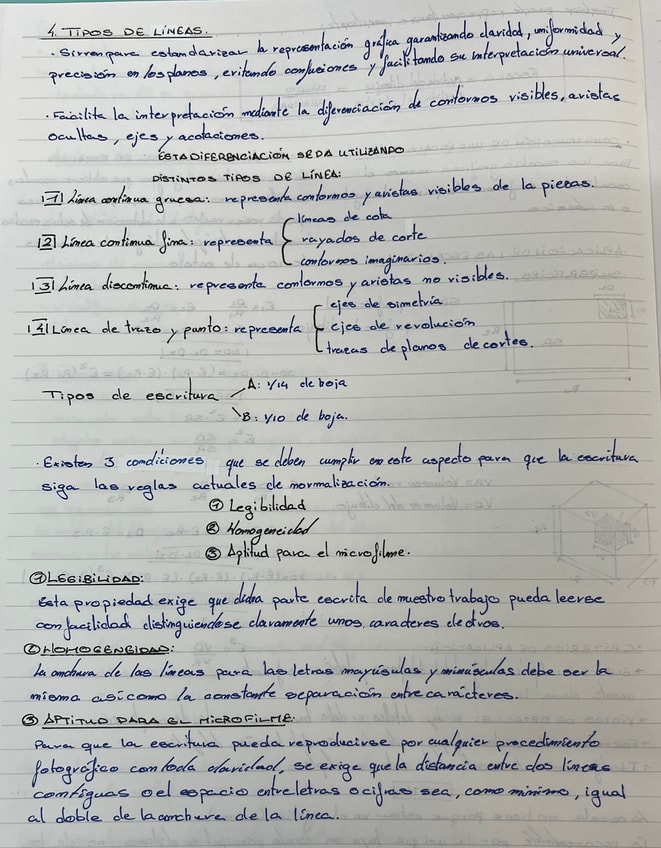 4. TIPOS DE LÍNEAS.
· Sirven para estandarizar la representación gráfica garantizando claridad, uniformidad y
precisión en los planos, evitando confusiones y facilitando su interpretación universal.
· Facilita la interpretación mediante la diferenciación de contornos visibles, aristas
ocultas, ejes y acotaciones.
ESTA DIFERENCIACIÓN SE DA UTILIZANDO
DISTINTOS TIPOS DE LÍNEA:
1 Línea continua gruesa: representa contornos y aristas visibles de la piezas.
2 Línea continua fina: representa { líneas de cota
rayados de corte
contornos imaginarios.
3 Línea discontinua: representa contornos y aristas no visibles.
4 Línea de trazo y punto: representa { ejes de simetría
ejes de revolución
trazas de planos de cortes.
Tipos de escritura A: 1/14 de boja
B: 1/10 de boja.
· Existen 3 condiciones que se deben cumplir en este aspecto para que la escritura
siga las reglas actuales de normalización.
① Legibilidad
② Homogeneidad
③ Aptitud para el microfilme.
① LEGIBILIDAD:
Esta propiedad exige que dicha parte escrita de nuestro trabajo pueda leerse
con facilidad distinguiéndose claramente unos caracteres de otros.
② HOMOGENEIDAD:
La anchura de las líneas para las letras mayúsculas y minúsculas debe ser la
misma así como la constante separación entre carácteres.
③ APTITUD PARA EL MICROFILME.
Para que la escritura pueda reproducirse por cualquier procedimiento
fotográfico con toda claridad, se exige que la distancia entre dos líneas
contiguas o el espacio entre letras o cifras sea, como mínimo, igual
al doble de la anchura de la línea.